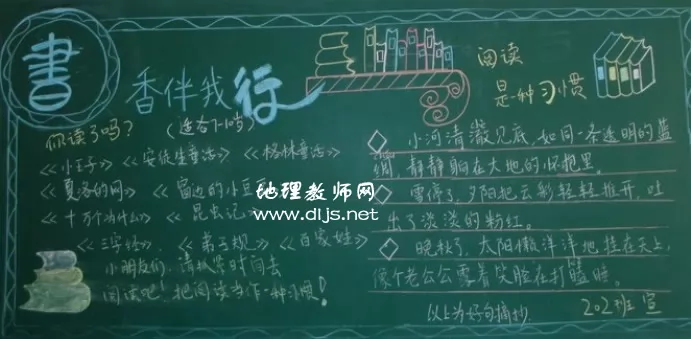 書香伴我行
阅读
是一种习惯
你读了吗？（适合7-10岁）
《小王子》《安徒生童话》《格林童话》
《夏洛的网》《窗边的小豆豆》
《十万个为什么》《昆虫记》
《三字经》、《弟子规》《百家姓》
小朋友们，请抓紧时间去
阅读吧！把阅读当作一种习惯！
小河清澈见底，如同一条透明的蓝
绸，静静躺在大地的怀抱里。
雪停了，夕阳把云彩轻轻推开，吐
出了淡淡的粉红。
晚秋了，太阳懒洋洋地挂在天上，
像个老公公露着笑脸在打瞌睡。
以上为好句摘抄
202班 宣
地理教师网
www.dljs.net